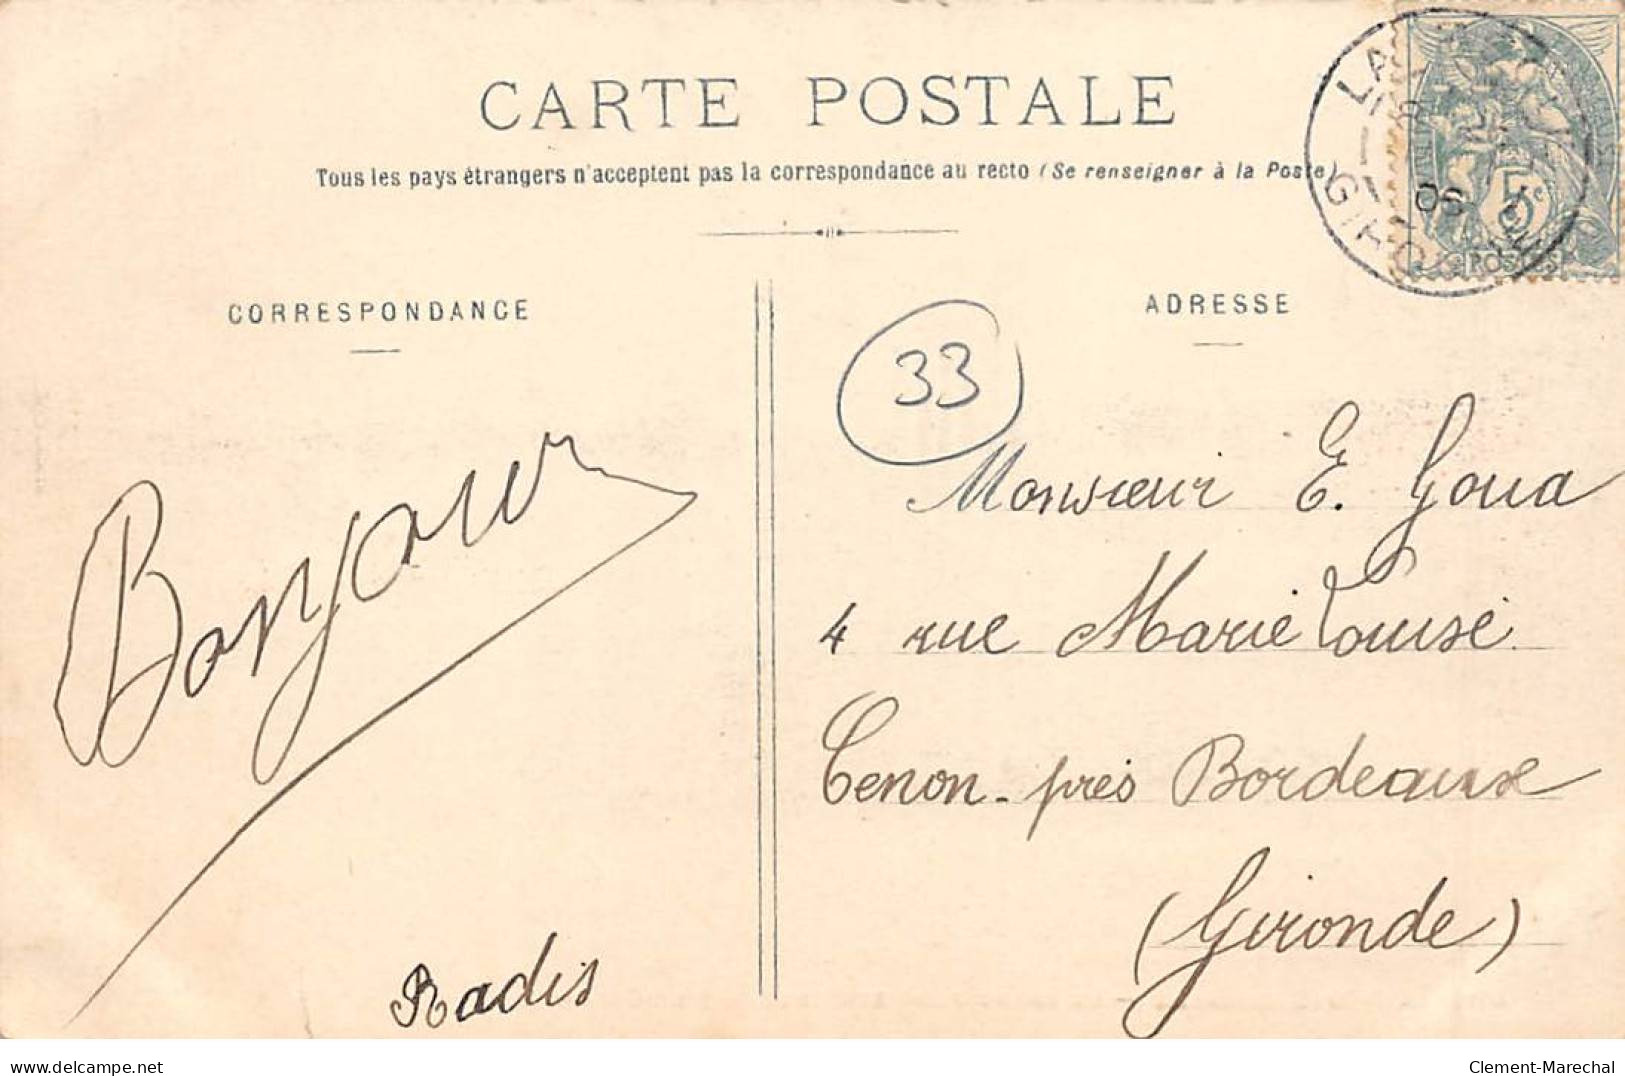 CARTE POSTALE
Tous les pays étrangers n'acceptent pas la correspondance au recto (Se renseigner à la Poste)
CORRESPONDANCE
ADRESSE
33
5c
POSTES
06
Bonjour
Radis
Monsieur E. Goua
4 rue Marie Louise
Cenon - près Bordeaux
(Gironde)
delcampe.net
Clement-Marechal